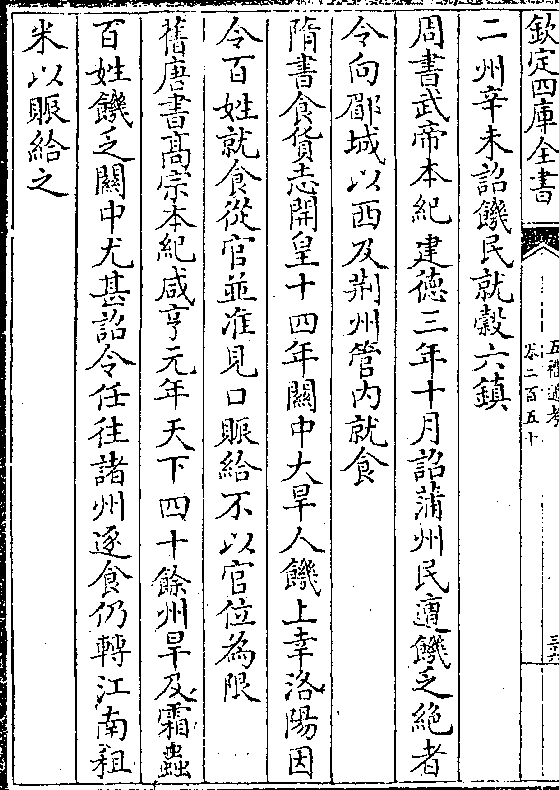 欽定四庫全書
五禮通考
卷二百五十
二州辛未詔饑民就穀六鎮
周書武帝本紀建德三年十月詔蒲州民遭饑乏絶者
令向郿城以西及荆州管内就食
隋書食貨志開皇十四年闗中大旱人饑上幸洛陽因
令百姓就食從官並准見口賑給不以官位為限
舊唐書髙宗本紀咸亨元年天下四十餘州旱及霜蟲
百姓饑乏闗中尤甚詔令任往諸州逐食仍轉江南租
米以賑給之